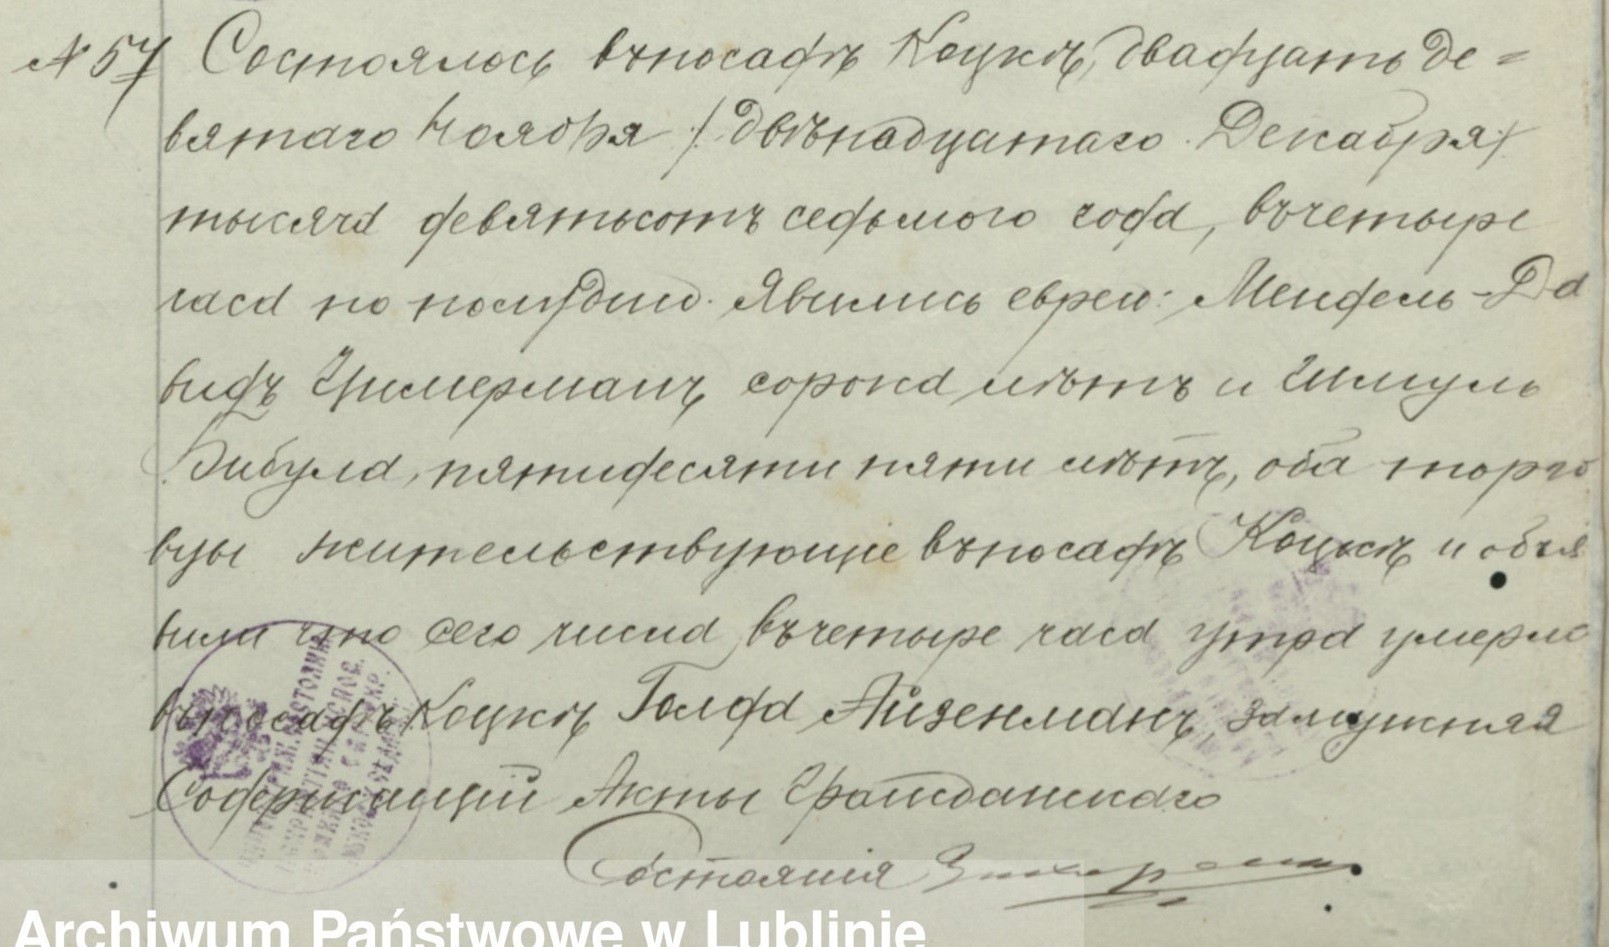 № 57 Состоялось въ посадѣ Коцкѣ, двадцать де=
вятаго Ноября /двѣнадцатаго Декабря/
тысяча девятьсотъ седьмого года, въ четыре
часа по полудни. Явились евреи: Мендель-Да
видъ Цимерманъ, сорока лѣтъ и Шмуль
Бибула, пятидесяти пяти лѣтъ, оба торго
вцы жительствующіе въ посадѣ Коцкѣ и объя
вили что сего числа въ четыре часа утра умерла
въ посадѣ Коцкѣ Голда Айзенманъ, замужняя
Содержащій Акты Гражданскаго
Состоянія
Archiwum Państwowe w Lublinie